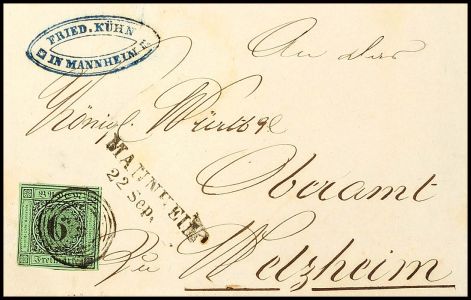 FRIED. KÜHN
IN MANNHEIM
An das
Königl. Württbge
Oberamt
MANNHEIM
22 Sep.
6
Freimarke
Zu Welzheim